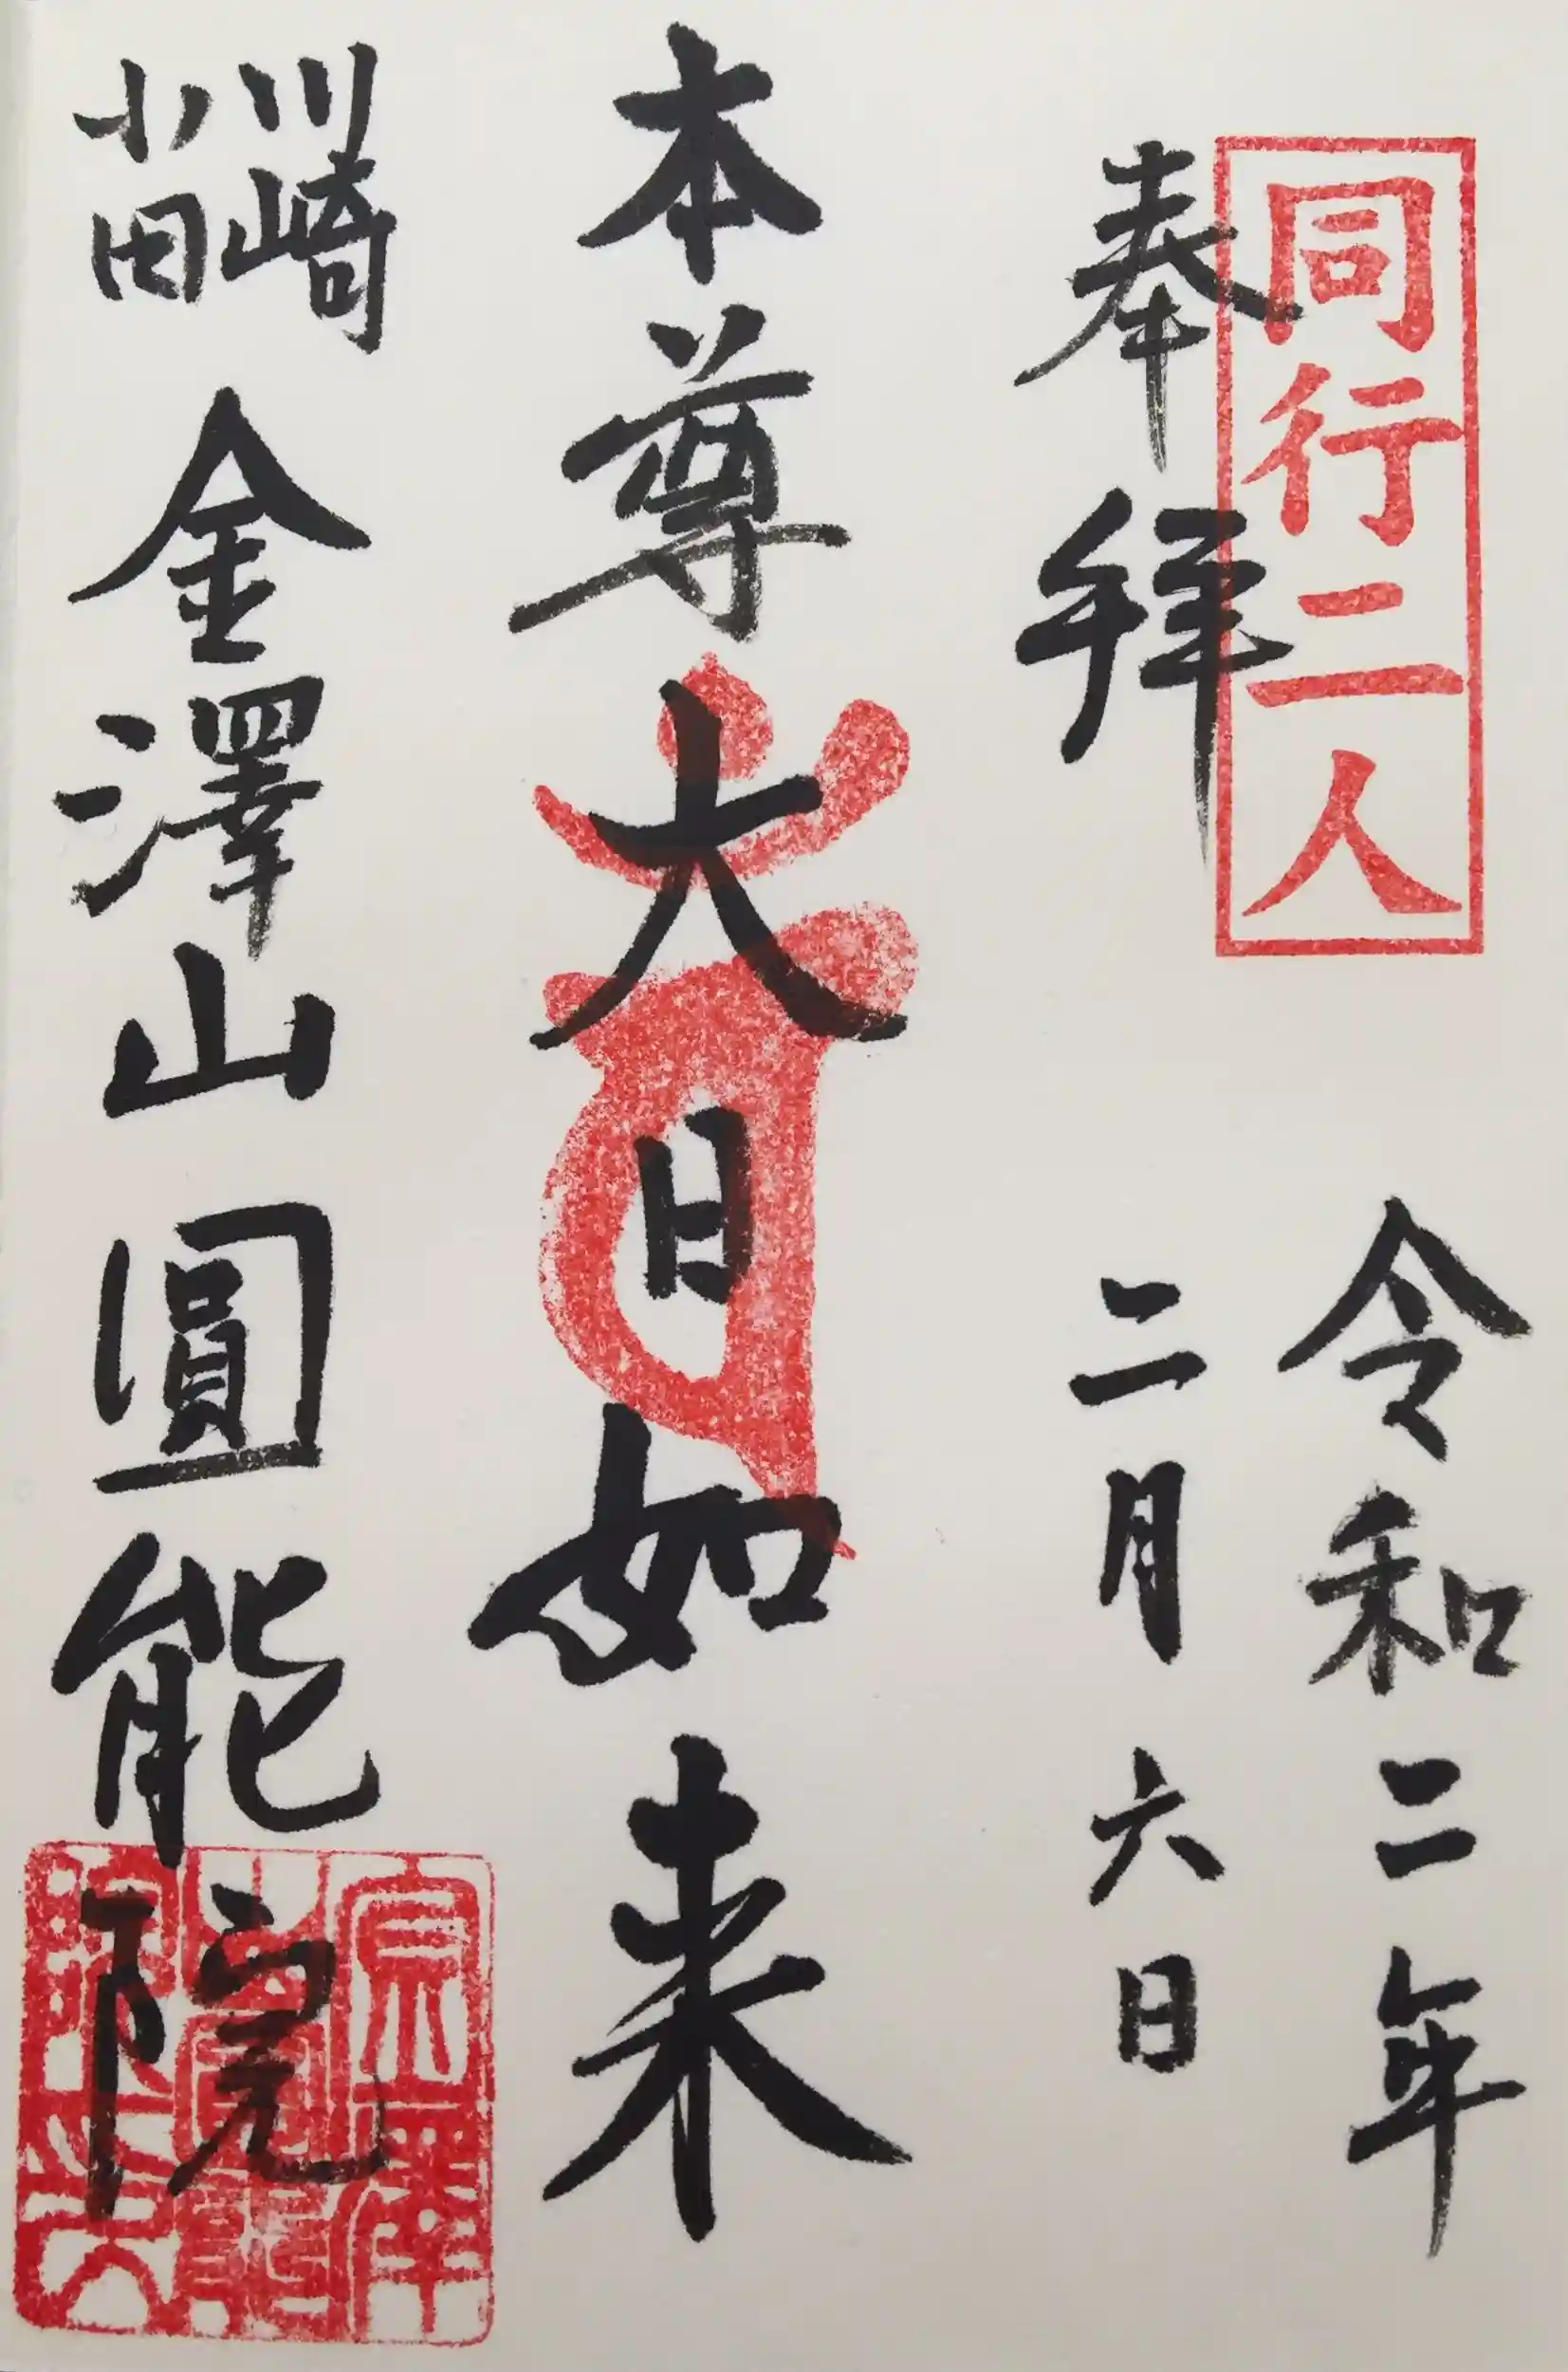 同行二人
奉拝
令和二年
二月六日
本尊大日如来
川崎
小田
金澤山圓能院